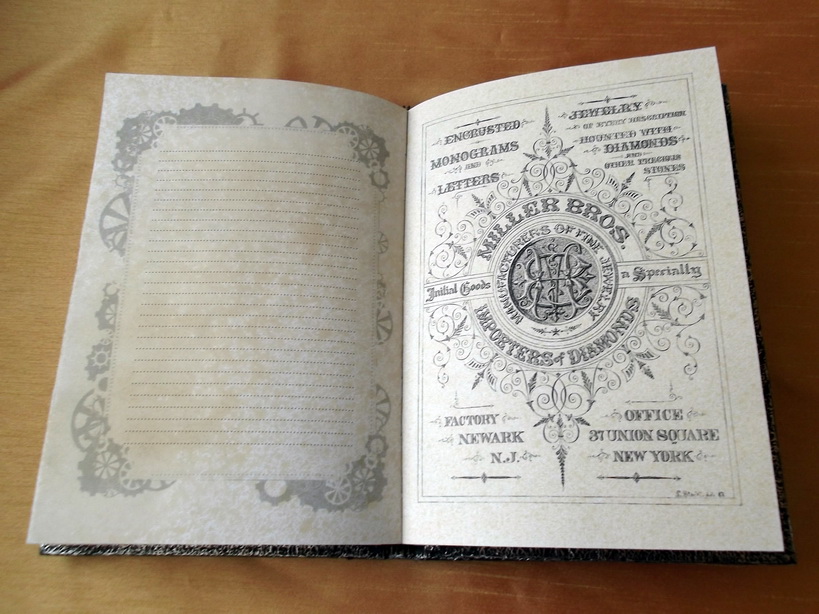 ENCRUSTED
MONOGRAMS
AND
LETTERS
JEWELRY
OF EVERY DESCRIPTION
MOUNTED WITH
DIAMONDS
AND
OTHER PRECIOUS
STONES
MILLER BROS.
MANUFACTURERS OF FINE JEWELRY
Initial Goods
a Specialty
IMPORTERS of DIAMONDS
FACTORY
NEWARK
N.J.
OFFICE
37 UNION SQUARE
NEW YORK